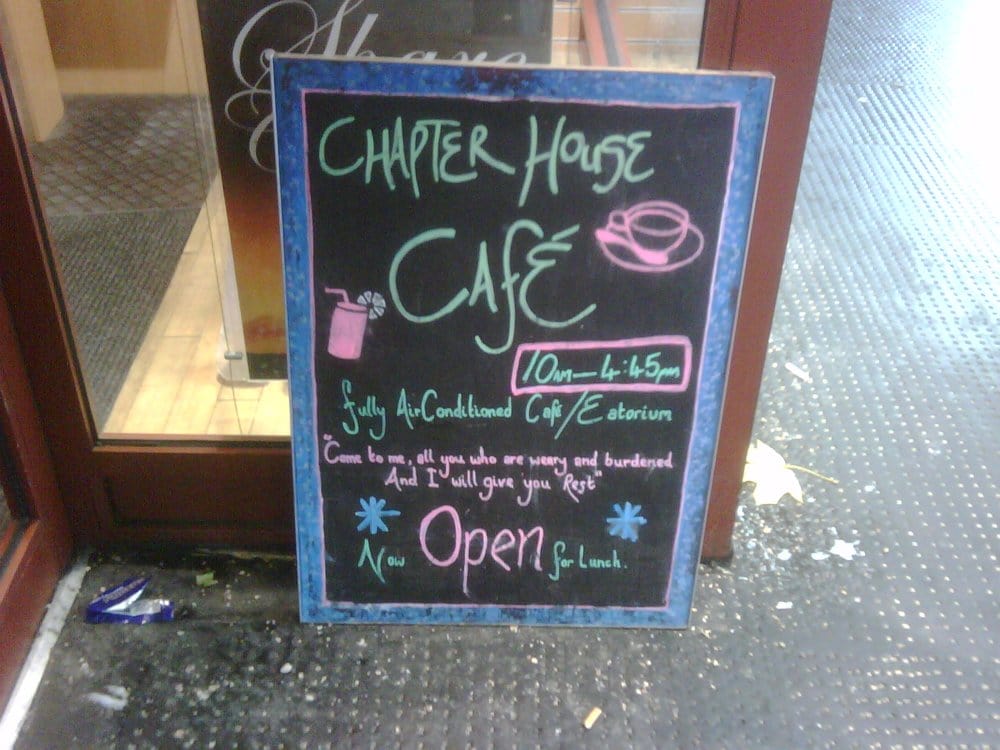 Share
CHAPTER HOUSE
CAFÉ
10am - 4:45pm
Fully AirConditioned Café/Eatorium
"Come to me, all you who are weary and burdened
And I will give you Rest"
Now Open for Lunch.